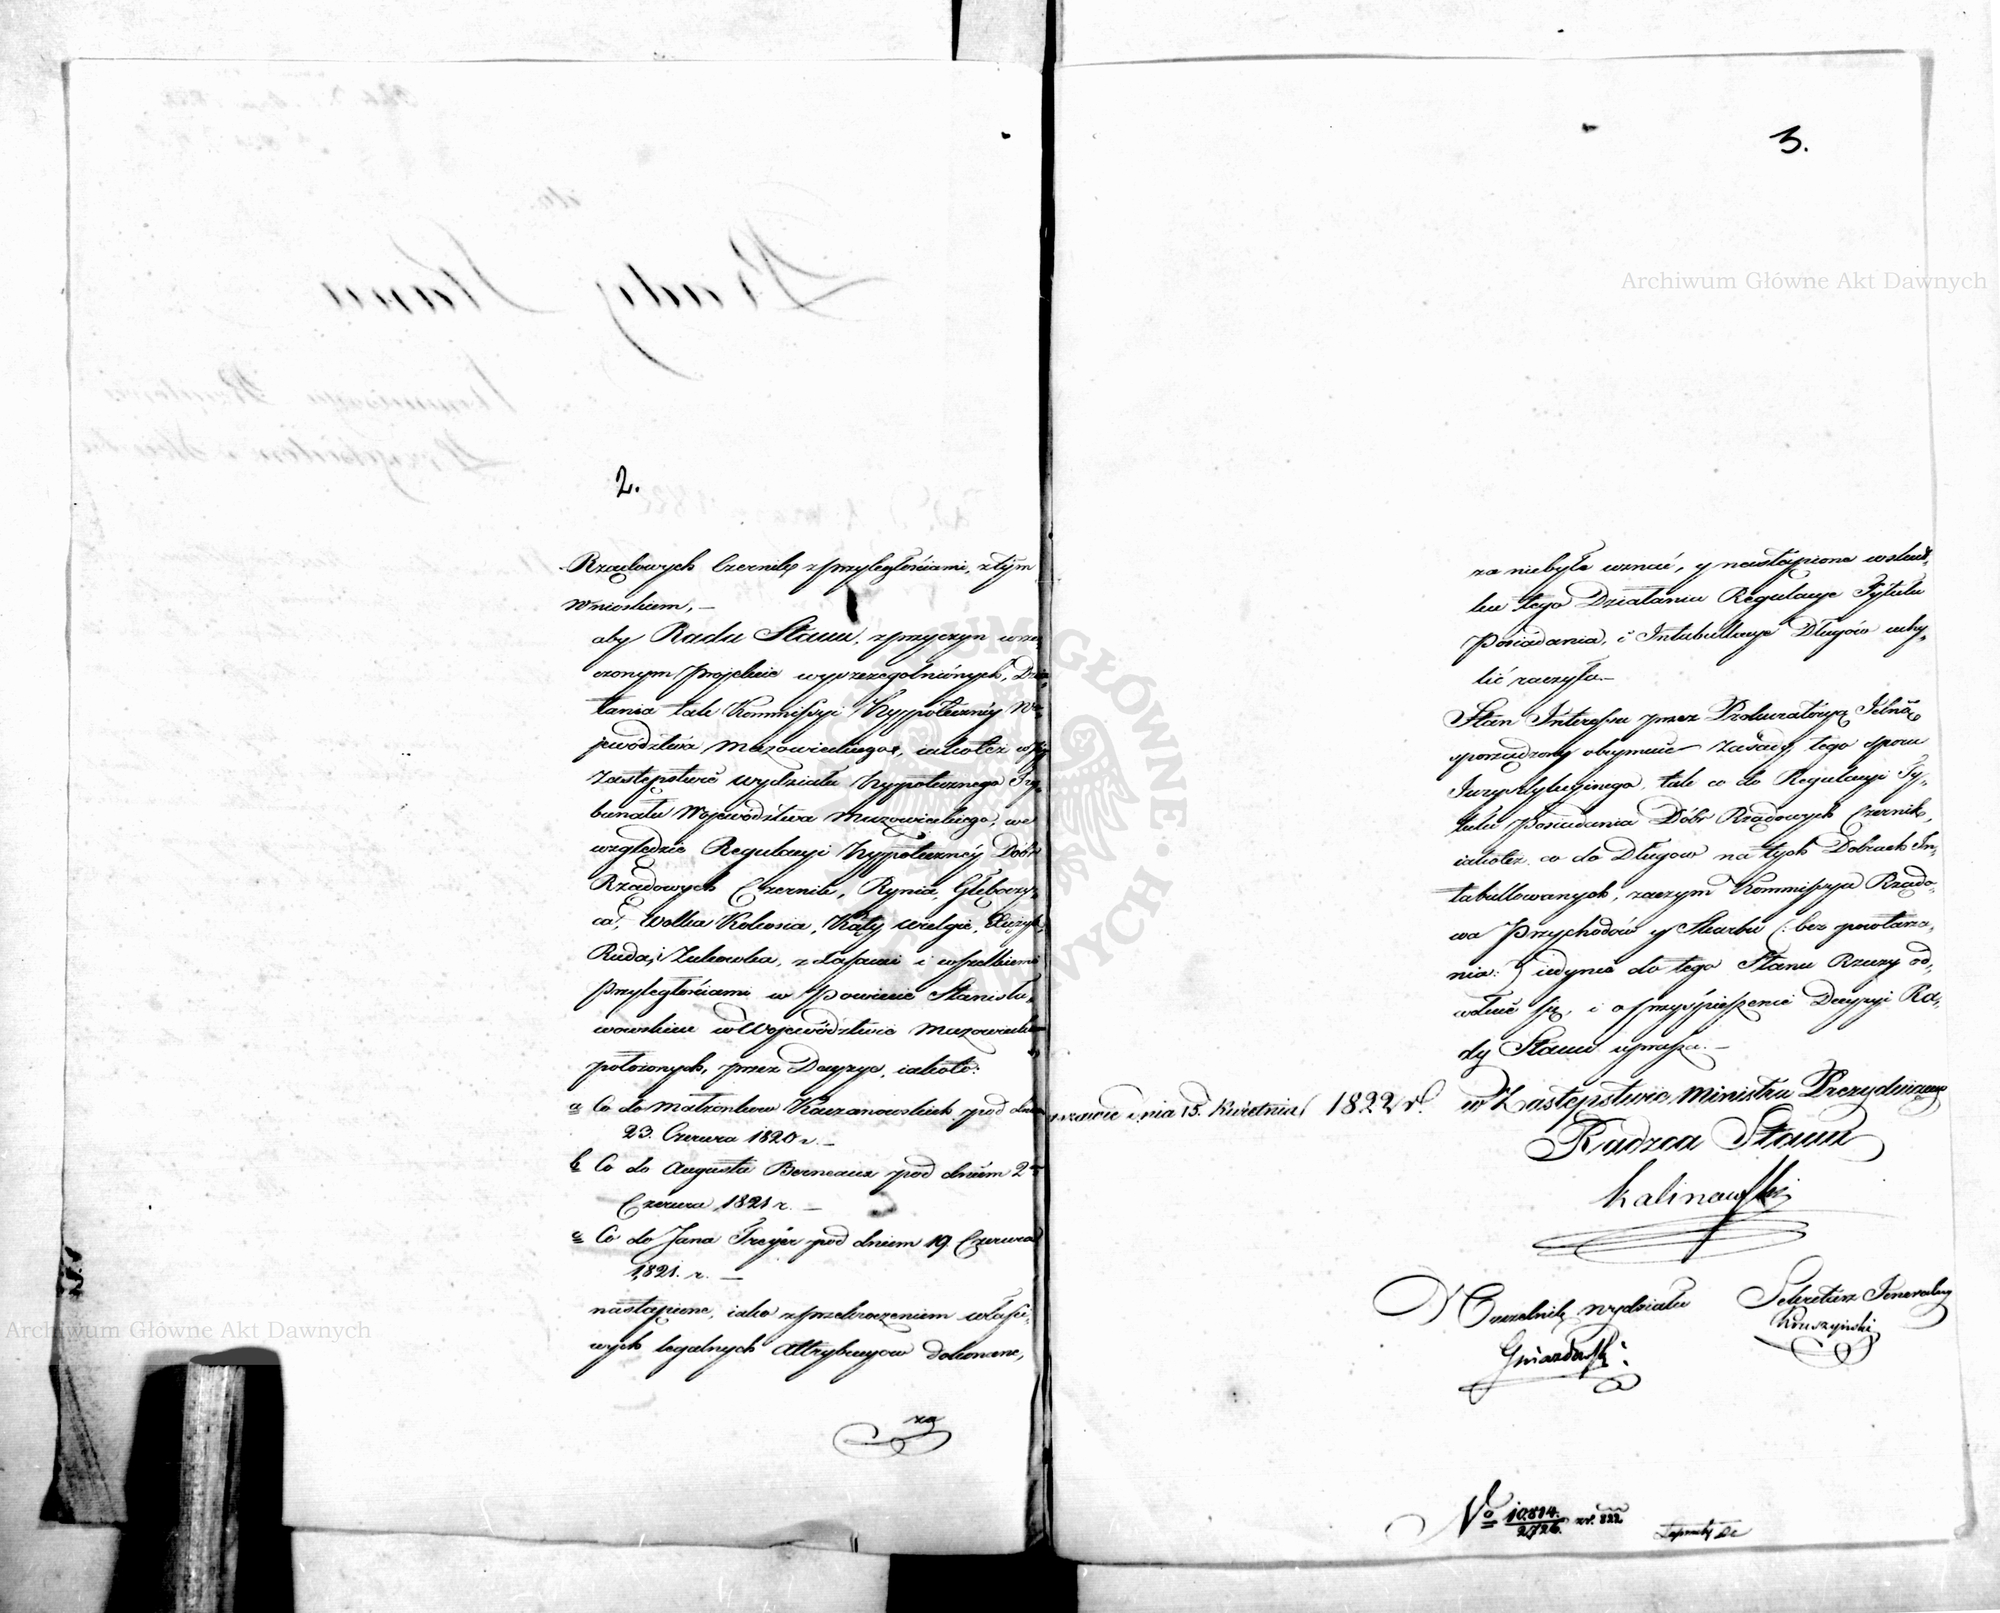 2.
Rządowych Czernik z przyległościami, z tym
Wnioskiem, —
aby Rada Stanu, z przyczyn wrze,
czonym projekcie wyszczególnionych, Dzia,
łania tak Kommissyi Hyppoteczney Wo,
jewództwa Mazowieckiego, iakoteż w
Zastępstwie wydziału Hyppotecznego Try,
bunału Województwa Mazowieckiego, we
względzie Regulacyi Hyppoteczney Dóbr
Rządowych Czernik, Rynia, Głęboczy,
ca, Wolka Kokosia, Kąty Wielgie,
Ruda, i Żukowka, z Lasami i wszelkiemi
przyległościami w Powiecie Stanisła,
wowskim w Województwie Mazowieckim
położonych, przez Decyzye, iakoto:
a Co do Małżonków Kaczanowskich pod dniem
23. Czerwca 1820 r. —
b Co do Augusta Berneaux pod dniem 2
Czerwca 1821 r. —
c Co do Jana Freyer pod dniem 19 Czerwca
1821. r. —
nastąpione, iako z przekroczeniem właści,
wych legalnych Attrybucyow dokonane,
za
3.
za niebyłe uznać, y nastąpione wskut,
ku tego Działania Regulacye Tytułu
Posiadania, i Intabulacye Długów uchy,
lić raczyła.—
Stan Interessu przez Prokuratoryą Jelną
sporządzony obeymuie Zasady tego sporu
Juryzdykcyinego, tak co do Regulacyi Ty,
tułu Posiadania Dóbr Rządowych Czernik,
iakoteż co do Długow na tych Dobrach In,
tabullowanych, zaczym Kommissya Rządo,
wa Przychodów y Skarbu (: bez powtarza,
nia :) iedynie do tego Stanu Rzeczy od,
wołuie się, i o przyśpieszenie Decyzyi Ra,
dy Stanu uprasza. —
dnia 15. Kwietnia 1822 r.
w Zastępstwie Ministra Prezyduiącego
Radzca Stanu
Kalinowski
Naczelnik wydziału
Sekretarz Jeneralny
Kruszyński
Gwiazdowski
No 10814./2726. xr. 822
Archiwum Główne Akt Dawnych
Archiwum Główne Akt Dawnych